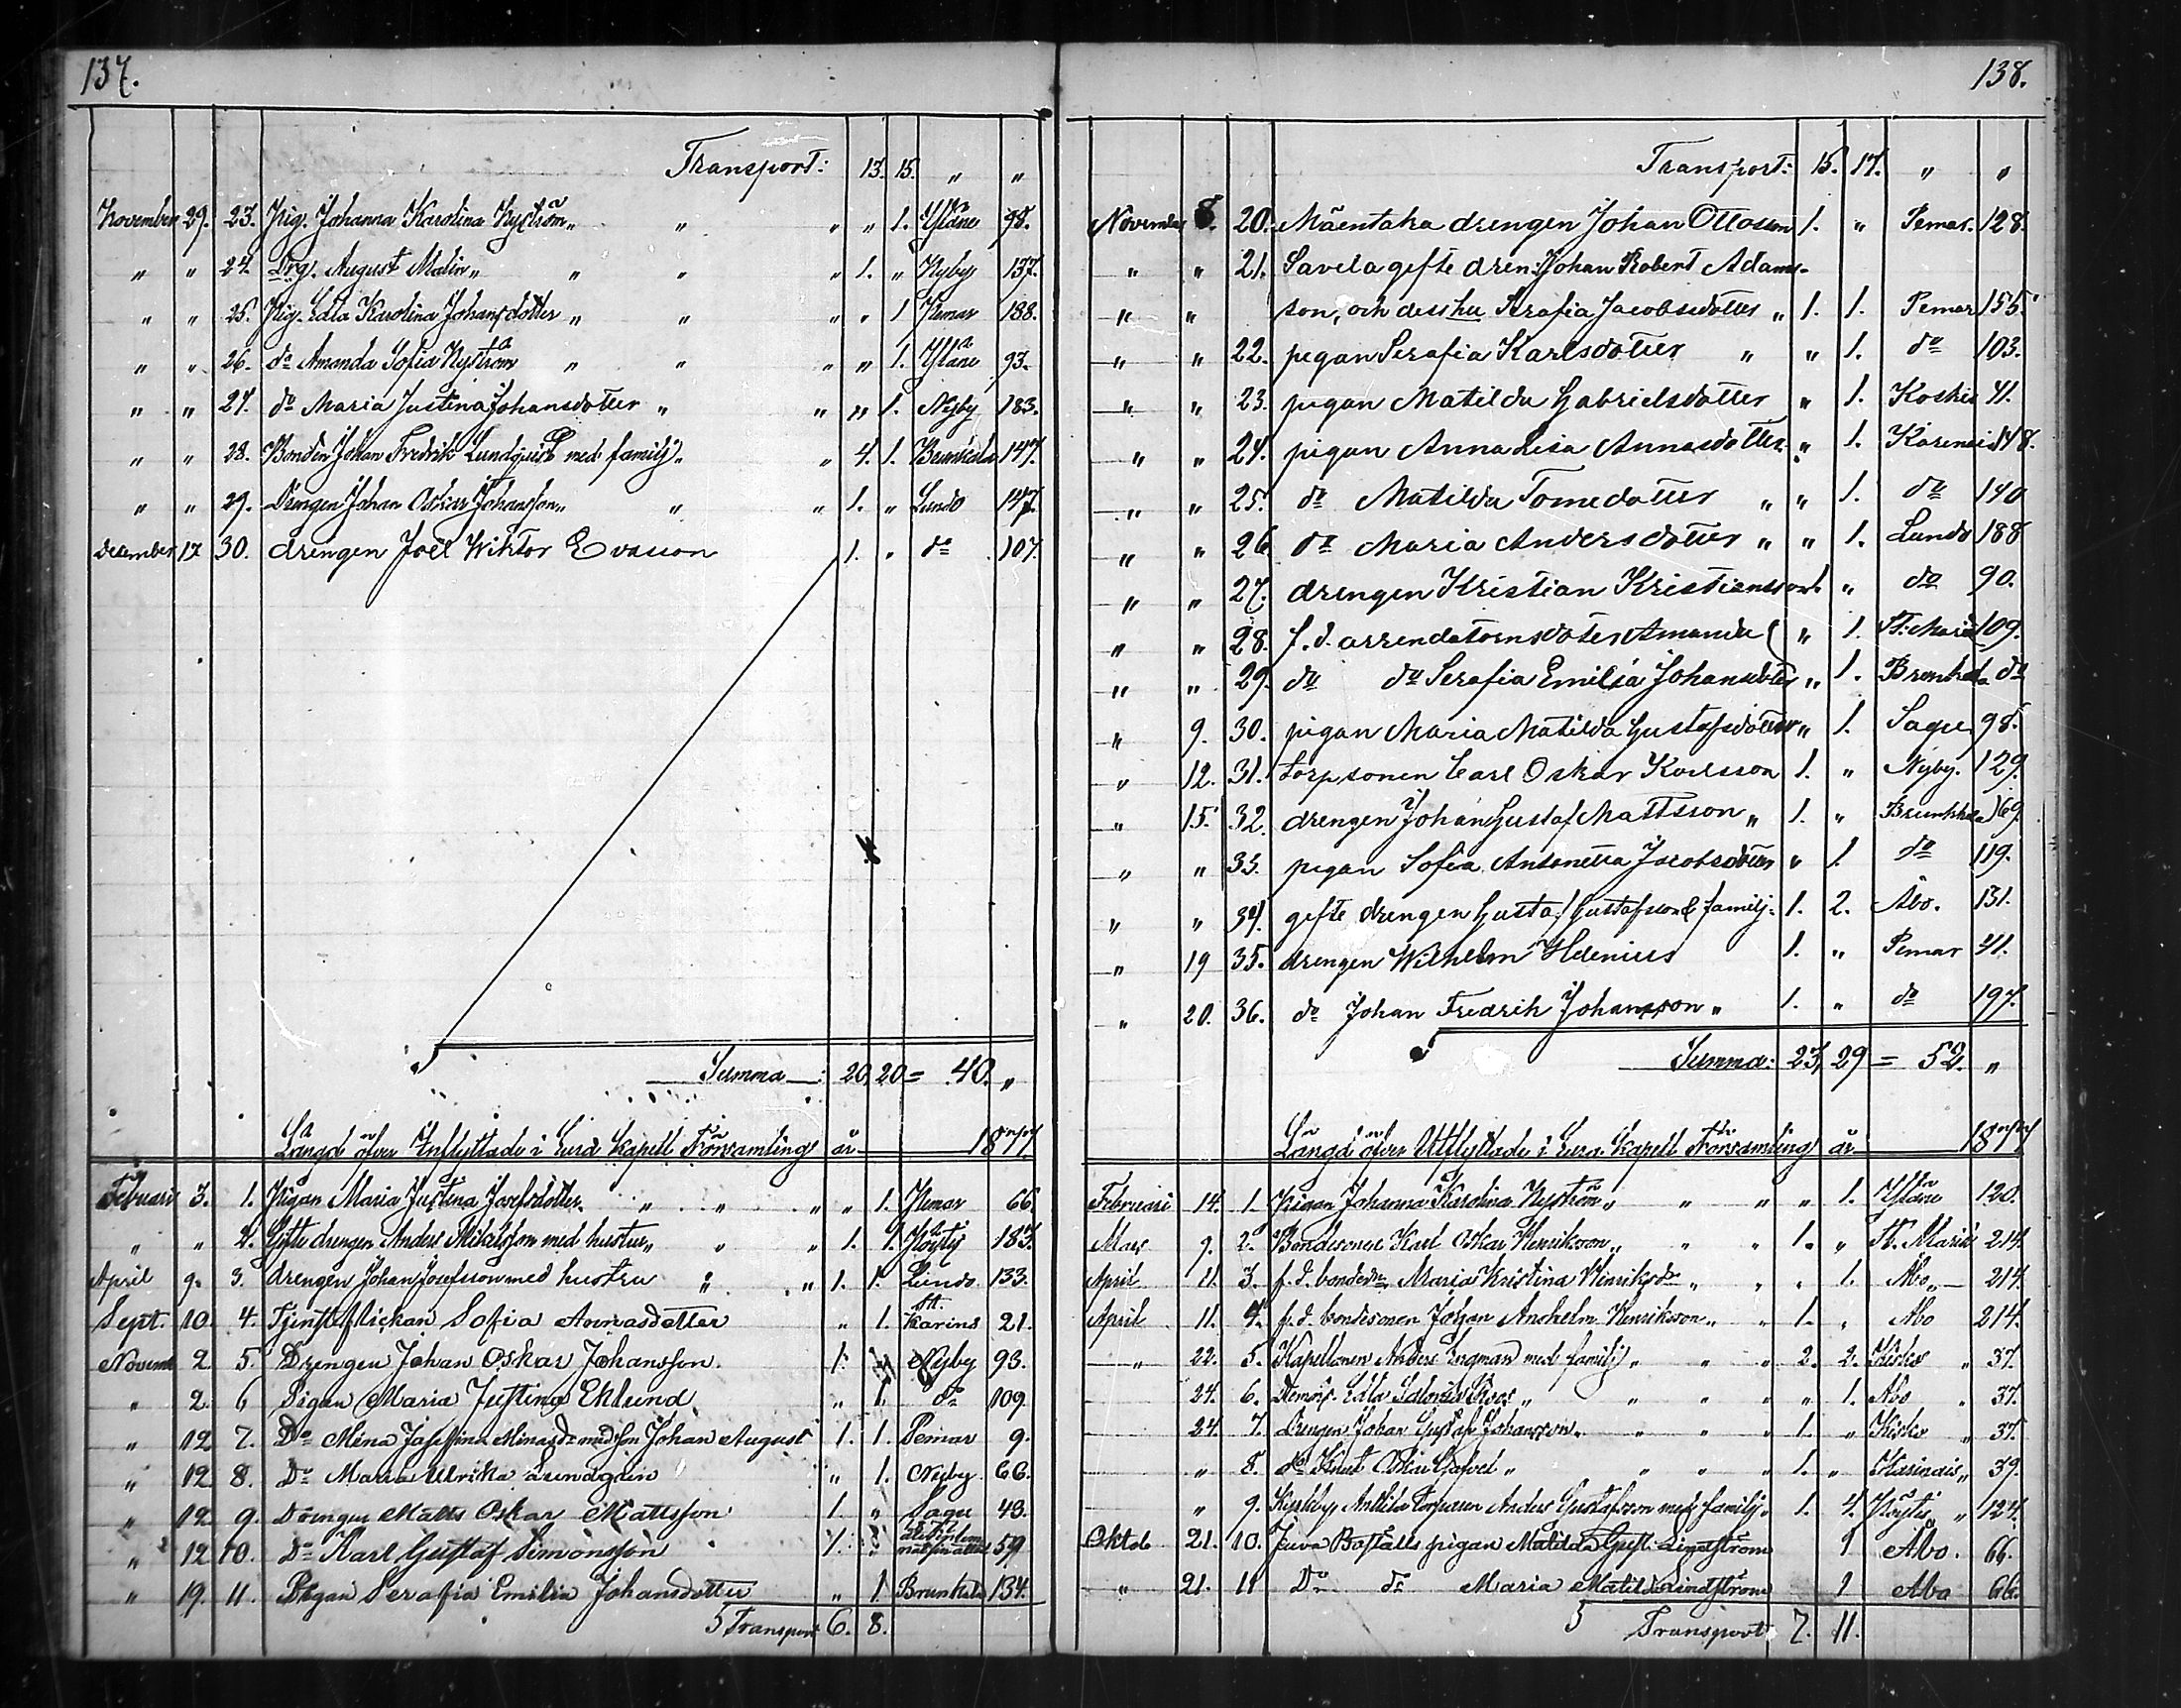 137.
Transport: 13. 15. " "
November 29. 23. Pig. Johanna Karolina Nyström " " " " 1. Yläne 98.
" " 24. Drg. August Malin " " " " 1. " Nyby 137.
" " 25. Pig. Edla Karolina Johansdotter " " " " 1 Pemar 188.
" " 26. do Amanda Sofia Nyström " " " " 1. Yläne 93.
" " 27. do Maria Justina Johansdotter " " " 1. Nyby 183.
" " 28. Bonden Johan Fredrik Lundqvist med familj " " 4. 1. Brunkala 147.
" " 29. Drengen Johan Oskar Johansson " " " 1. " Lundo 147.
December 17 30. drengen Joel Wiktor Evasson 1. " do 107.
Summa: 20, 20 = 40. "
Längd öfver Inflyttade i Eura Kapell Församling år 1877
Febuarii 3. 1. Pigan Maria Justina Josefsdotter " " " " 1. Pemar 66.
" " 2. Gifte drengen Anders Mikelsson med hustru " " " 1. 1. Pöytis 183.
April 9. 3. drengen Johan Josefsson med hustru " " 1. 1. Lundo. 133.
Sept. 10. 4. Tjenstflickan Sofia Annasdotter " 1. St. Karins 21.
Novemb 2. 5. Drengen Johan Oskar Johansson. 1. " Nyby 93.
" 2. 6 Pigan Maria Justina Eklund " 1. do 109.
" 12. 7. Do Mina Josefina Minasdr med son Johan August 1. 1. Pemar 9.
" 12. 8. Do Maria Ulrika Lundgrén " 1. Nyby 66.
" 12. 9. Drengen Matts Oskar Mattsson 1. " Sagu 43.
" 12 10. Do Karl Gustaf Simonsson 1. " 59
" 19. 11. Pigan Serafia Emilia Johansdotter " 1 Brunkala 134.
Transport 6. 8.
138.
Transport: 15. 17. " "
November 8. 20. Mäentaka drengen Johan Ottosson 1. " Pemar. 128.
" " 21. Savela gifte dren: Johan Robert Adams-
" " son, och dess hu Serafia Jacobsdotter " 1. 1. Pemar 155.
" " 22. pigan Serafia Karlsdotter " " 1. do 103.
" " 23. pigan Matilda Gabrielsdotter " 1. Koskis 41.
" " 24. pigan Anna Lisa Annasdotter " 1. Karinais 148.
" " 25. do Matilda Tomedotter " " 1. do 140
" " 26 do Maria Andersdotter " " 1. Lundo 188
" " 27. drengen Kristian Kristiansson 1. " do 90.
" " 28. f.d. arrendatornsdoter Amanda ( " 1. St: Marie 109.
" " 29. do do Serafia Emilia Johansdoter " 1. Brunkala do
" 9. 30. pigan Maria Matilda Gustafsdotter " 1. Sagu 98.
" 12. 31. torpsonen Carl Oskar Karlsson 1. " Nyby. 129.
" 15. 32. drengen Johan Gustaf Mattsson " 1. " Brunkkala 169.
" " 33. pigan Sofia Antonetta Jacobsdotter " 1. do 119.
" " 34. gifte drengen Gustaf Gustafsson & familj. 1. 2. Åbo. 131.
" 19 35. drengen Wilhelm Idenius 1. " Pemar 41.
" 20. 36. do Johan Fredrik Johansson " 1. " do 197.
Summa: 23, 29 = 52. "
Längd öfver Utflyttade i Eura Kapell Församling år 1877
Februari 14. 1. Pigan Johanna Karolina Nyström " " " " 1. Yläne 120.
Mars 9. 2. Bondesonen Karl Oskar Henriksson " " " 1. " St. Marie 214.
April 11. 3. f.d. bondedr. Maria Kristina Hinriksdr " " " 1. Åbo " 214.
April 11. 4. f.d. bondesonen Johan Anshelm Henriksson " " 1. " Åbo 214.
" 22. 5. Kapellanen Anders Engman med familj " " " 2. 2. Kisko " 37.
24. 6. Demois. Edla " " " " 1. Åbo " 37.
24. 7. Drengen Johan Gustaf Johansson " " " " 1. " Kisko " 37.
" 8. do Knut " " " " 1. " Karinais " 39.
" 9. Kyrkby Anttila torparen Anders Gustafsson med familj " 1. 4. Pöytis " 124.
Oktob 21. 10. Juva Boställs pigan Matilda Gust. Lindström 1 Åbo. 66.
" 21. 11 Do do Maria Matilda Lindström 1 Åbo 66.
Transport 7. 11.